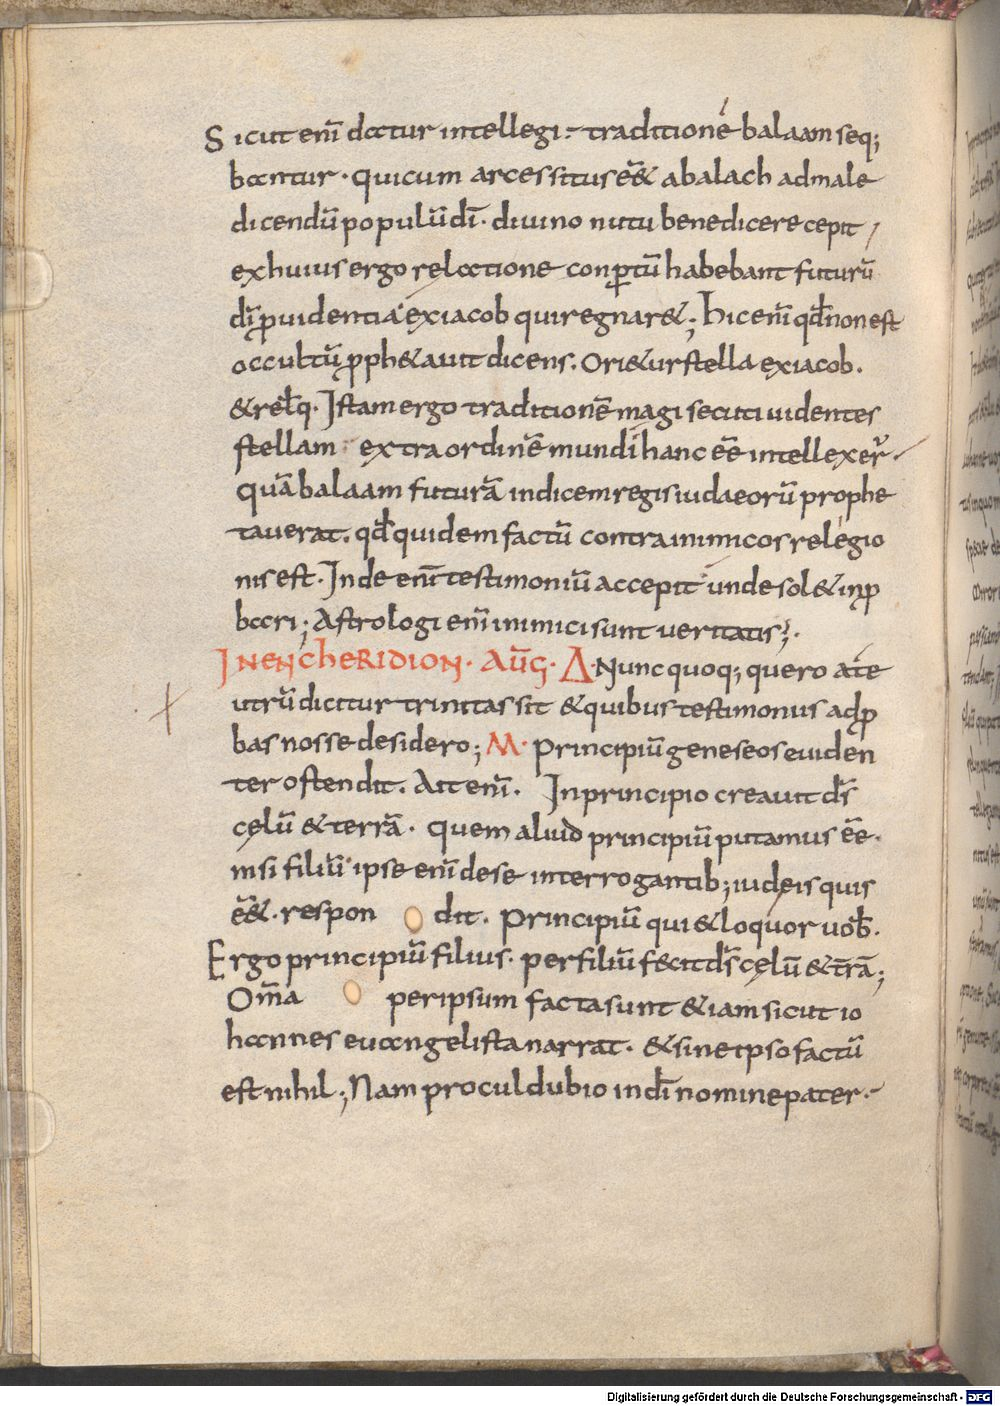 Sicut enī datur intellegi ;- traditionē balaam seq;
bantur · qui cum arcessitus eēt& abalach admale
dicendū populū dī · divino nutu benedicere cepit
exhuius ergo relatione conp̄tū habebant futurū
dī p̱uidentia exiacob qui regnar&; hic enī qđ non est
occultū p̱ph&auit dicens. Ori&ur stella exiacob.
& rełq. Istam ergo traditionē magi secuti uidentes
stellam extra ordinē mundi hanc eē intellexer̄ ·
quā balaam futurā indicem regis iudaeorū prophe
tauerat. qđ quidem factū contra inimicos relegio
nis est. Inde enī testimoniū accepit unde sol& inp̱
bari; Astrologi enī inimici sunt ueritatis;.
IN ENCHERIDION · AUḠ · Δ · Nunc quoq; quero ate
utrū dicitur trinitas sit & quibus testimoniis adp̱
bas nosse desidero; M · Principiū geneseos euiden
ter ostendit. Ait enī. In principio creauit dś
cęlū & terrā. quem aliud principiū putamus eē.
nisi filiū ipse enī dese interrogantib; iudeis quis
eēt&. respon dit. Principiū qui & loquor uob̄.
Ergo principiū filius. per filiū fecit dś cęlū & t̄rā;
Om̄a per ipsum facta sunt & iam sicut io
hannes euangelista narrat. & sine ipso factū
est nihil; Nam procul dubio in dī nomine pater.
Digitalisierung gefördert durch die Deutsche Forschungsgemeinschaft - DFG